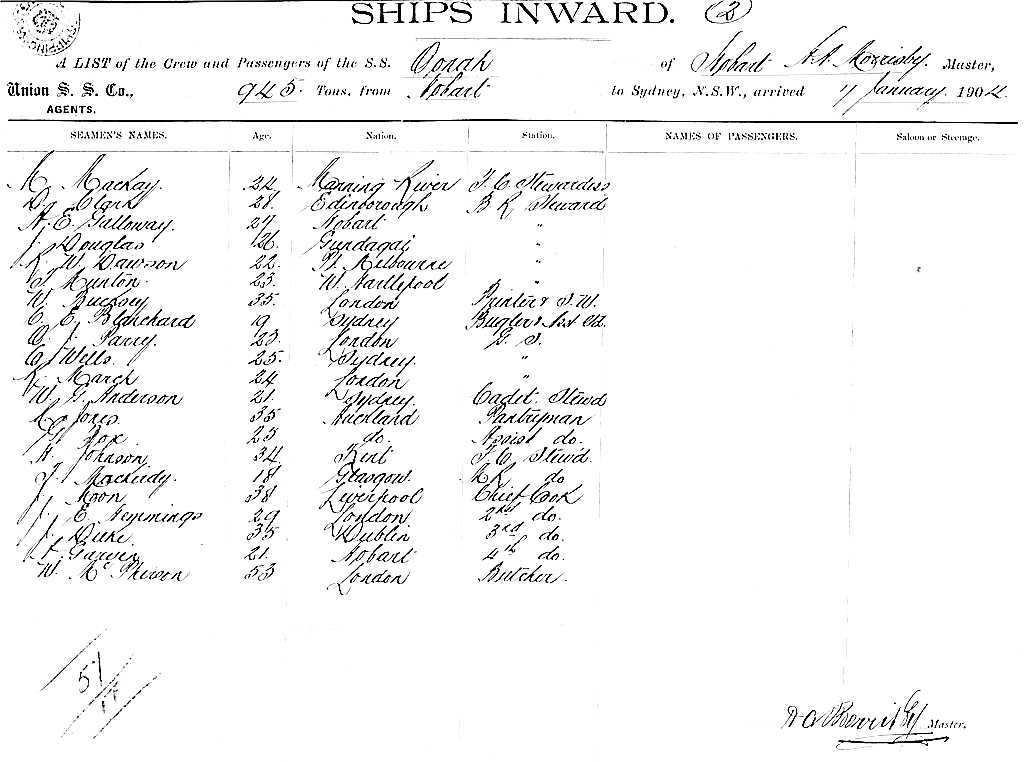 SHIPS INWARD. (2)
A LIST of the Crew and Passengers of the S.S. Oonah of Hobart A.A. Morrisby. Master,
Union S. S. Co., 945. Tons, from Hobart to Sydney, N.S.W., arrived 7 January. 1904.
AGENTS.
SEAMEN'S NAMES. Age. Nation. Station. NAMES OF PASSENGERS. Saloon or Steerage.
M. Mackay. 24 Manning River F. C. Stewardess
D. Clark 28. Edinborough B R Steward
H. E. Galloway. 27 Hobart "
J. Douglas 26. Gundagai "
R. W. Dawson 22. Pt. Melbourne "
Hunton. 23. W. Hartlepool "
W. Bucksey 35. London Printer & S. W.
C. E. Blanchard 19 Sydney Bugler &
C. J. Parry. 23. London G. S.
C. Wells. 25. Sydney. "
R. March 24 London "
W. G. Anderson 21. Sydney. Cadet. Stewd
R. Jones 35 Auckland Pantryman
G. Fox 23 do. Assist do.
H. Johnson 34 Kent F. C. Stew'd.
18 Glasgow. do
J. Moon 38 Liverpool Chief Cook
J. E. Hemmings 29 London 2nd do.
J. 35 Dublin 3rd do.
Garvin 21. Hobart 4th do.
W. McPherson 53 London Butcher.
51
Master.